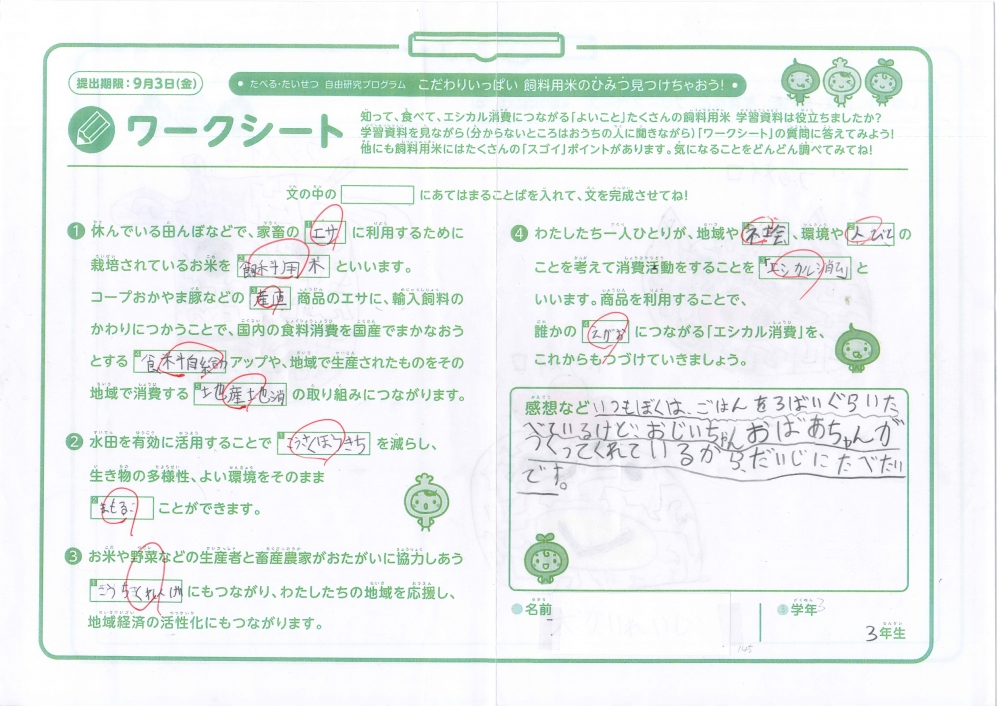 提出期限:9月3日(金)
・たべる・たいせつ 自由研究プログラム こだわりいっぱい 飼料用米のひみつ見つけちゃおう!・
ワークシート
知って、食べて、エシカル消費につながる「よいこと」たくさんの飼料用米 学習資料は役立ちましたか?
学習資料を見ながら(分からないところはおうちの人に聞きながら)「ワークシート」の質問に答えてみよう!
他にも飼料用米にはたくさんの「スゴイ」ポイントがあります。気になることをどんどん調べてみてね!
文の中の にあてはまることばを入れて、文を完成させてね!
1 休んでいる田んぼなどで、家畜の エサ に利用するために
栽培されているお米を 飼料用米 といいます。
コープおかやま豚などの 産直 商品のエサに、輸入飼料の
かわりにつかうことで、国内の食料消費を国産でまかなおう
とする 食料自給 アップや、地域で生産されたものをその
地域で消費する 地産地消 の取り組みにつながります。
2 水田を有効に活用することで こうさくほうきち を減らし、
生き物の多様性、よい環境をそのまま
まもる ことができます。
3 お米や野菜などの生産者と畜産農家がおたがいに協力しあう
こうちくれんけい にもつながり、わたしたちの地域を応援し、
地域経済の活性化にもつながります。
4 わたしたち一人ひとりが、地域や 社会 、環境や 人びと の
ことを考えて消費活動をすることを 「エシカル消費」 と
いいます。商品を利用することで、
誰かの えがお につながる「エシカル消費」を、
これからもつづけていきましょう。
感想など いつもぼくは、ごはんを3ばいぐらいた
べているけど、おじいちゃんおばあちゃんが
つくってくれているから、だいじにたべたい
です。
名前
学年
3年生